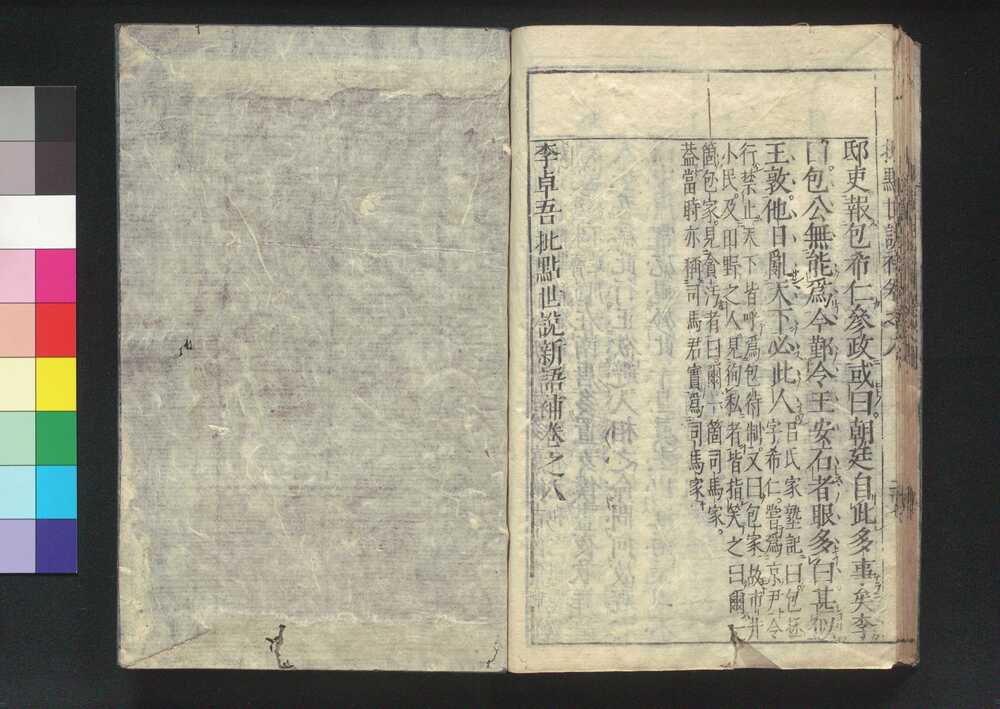 邸吏報包希仁參政或曰朝廷自此多事矣李
曰包公無能爲今鄞令王安石者眼多白甚似
王敦他日亂天下必此人 呂氏家塾記曰包拯
字希仁嘗爲京尹令
行禁止天下皆呼爲包待制又曰包家故市井
小民及田野之人見徇私者皆指笑之曰爾一
箇包家見貪污者曰爾一箇司馬家
蓋當時亦稱司馬君實爲司馬家
李卓吾批點世說新語補卷之八